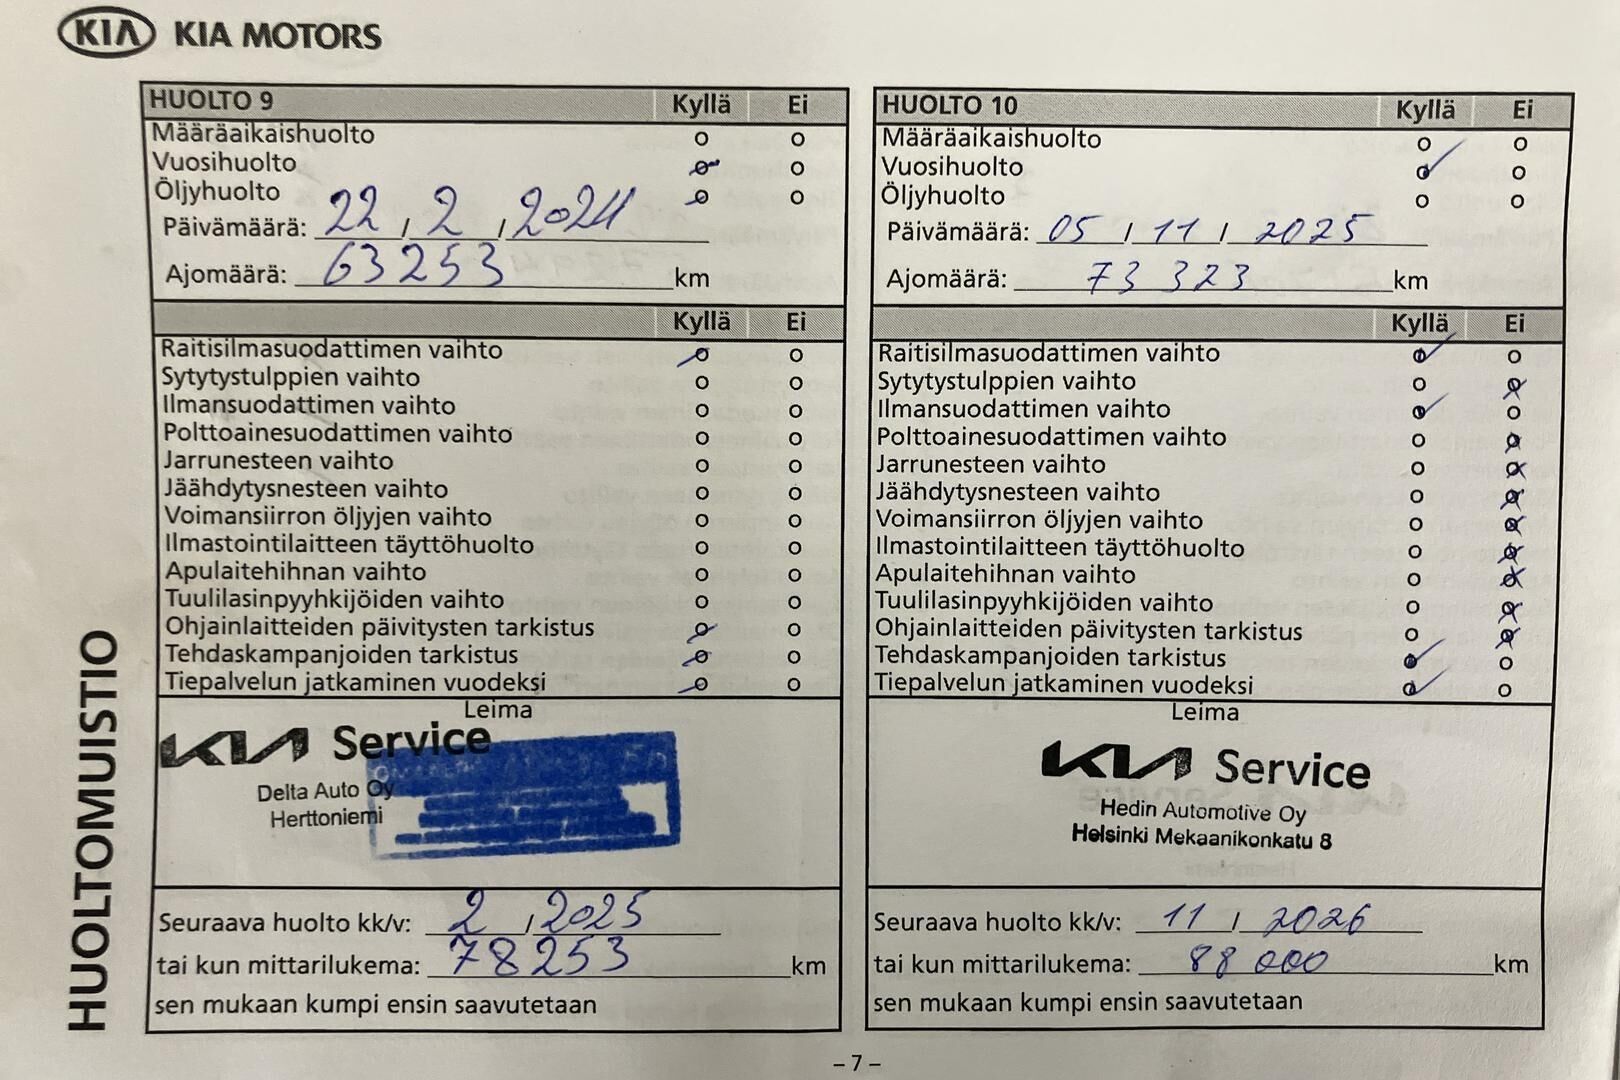 KIA KIA MOTORS
HUOLTOMUISTIO
HUOLTO 9 Kyllä Ei
Määräaikaishuolto o o
Vuosihuolto o o
Öljyhuolto o o
Päivämäärä: 22 / 2 / 2024
Ajomäärä: 63253 km
Kyllä Ei
Raitisilmasuodattimen vaihto o o
Sytytystulppien vaihto o o
Ilmansuodattimen vaihto o o
Polttoainesuodattimen vaihto o o
Jarrunesteen vaihto o o
Jäähdytysnesteen vaihto o o
Voimansiirron öljyjen vaihto o o
Ilmastointilaitteen täyttöhuolto o o
Apulaitehihnan vaihto o o
Tuulilasinpyyhkijöiden vaihto o o
Ohjainlaitteiden päivitysten tarkistus o o
Tehdaskampanjoiden tarkistus o o
Tiepalvelun jatkaminen vuodeksi o o
Leima
KIA Service
Delta Auto Oy
Herttoniemi
Seuraava huolto kk/v: 2 / 2025
tai kun mittarilukema: 78253 km
sen mukaan kumpi ensin saavutetaan
HUOLTO 10 Kyllä Ei
Määräaikaishuolto o o
Vuosihuolto o o
Öljyhuolto o o
Päivämäärä: 05 / 11 / 2025
Ajomäärä: 73 323 km
Kyllä Ei
Raitisilmasuodattimen vaihto o o
Sytytystulppien vaihto o o
Ilmansuodattimen vaihto o o
Polttoainesuodattimen vaihto o o
Jarrunesteen vaihto o o
Jäähdytysnesteen vaihto o o
Voimansiirron öljyjen vaihto o o
Ilmastointilaitteen täyttöhuolto o o
Apulaitehihnan vaihto o o
Tuulilasinpyyhkijöiden vaihto o o
Ohjainlaitteiden päivitysten tarkistus o o
Tehdaskampanjoiden tarkistus o o
Tiepalvelun jatkaminen vuodeksi o o
Leima
KIA Service
Hedin Automotive Oy
Helsinki Mekaanikonkatu 8
Seuraava huolto kk/v: 11 / 2026
tai kun mittarilukema: 88 000 km
sen mukaan kumpi ensin saavutetaan
– 7 –